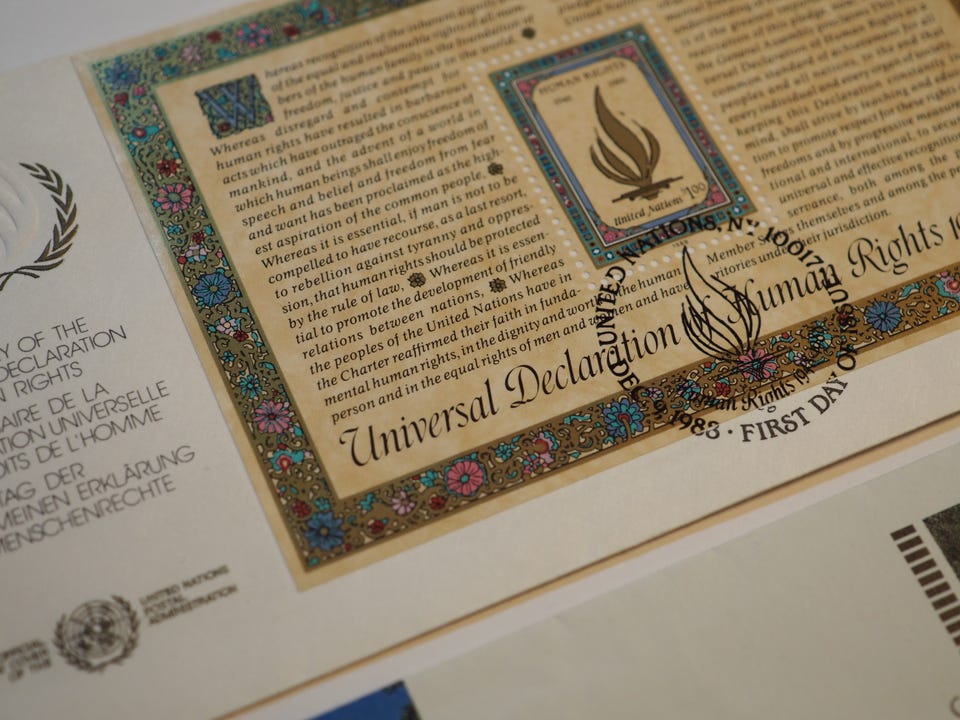 Whereas recognition of the inherent dignity
of the equal and inalienable rights of all mem-
bers of the human family is the foundation
of freedom, justice and peace in
the world. Whereas
disregard and contempt for
human rights have resulted in barbarous
acts which have outraged the conscience of
mankind, and the advent of a world in
which human beings shall enjoy freedom of
speech and belief and freedom from fear
and want has been proclaimed as the high-
est aspiration of the common people
Whereas it is essential, if man is not to be
compelled to have recourse, as a last resort,
to rebellion against tyranny and oppres-
sion, that human rights should be protected
by the rule of law, Whereas it is essen-
tial to promote the development of friendly
relations between nations, Whereas
the peoples of the United Nations have in
the Charter reaffirmed their faith in funda-
mental human rights, in the dignity and worth of the human
person and in the equal rights of men and women and have
HUMAN RIGHTS
$1.00
United Nations
peoples and all nations, to the end that
every individual and every organ of society
keeping this Declaration
in mind, shall strive by teaching and edu
tion to promote respect for these rights
freedoms and by progressive measures
tional and international, to secure
universal and effective recognition
servance, both among the
Member States themselves and among the
ritories under their jurisdiction.
Universal Declaration of Human Rights 19
UNITED NATIONS, NY 10017
FIRST DAY OF ISSUE
DEC. 9, 1983
Human Rights
Y OF THE
DECLARATION
N RIGHTS
AIRE DE LA
TION UNIVERSELLE
OITS DE L'HOMME
TAG DER
MEINEN ERKLÄRUNG
MENSCHENRECHTE
OFFICIAL
COVER
OF THE
UNITED NATIONS
POSTAL
ADMINISTRATION